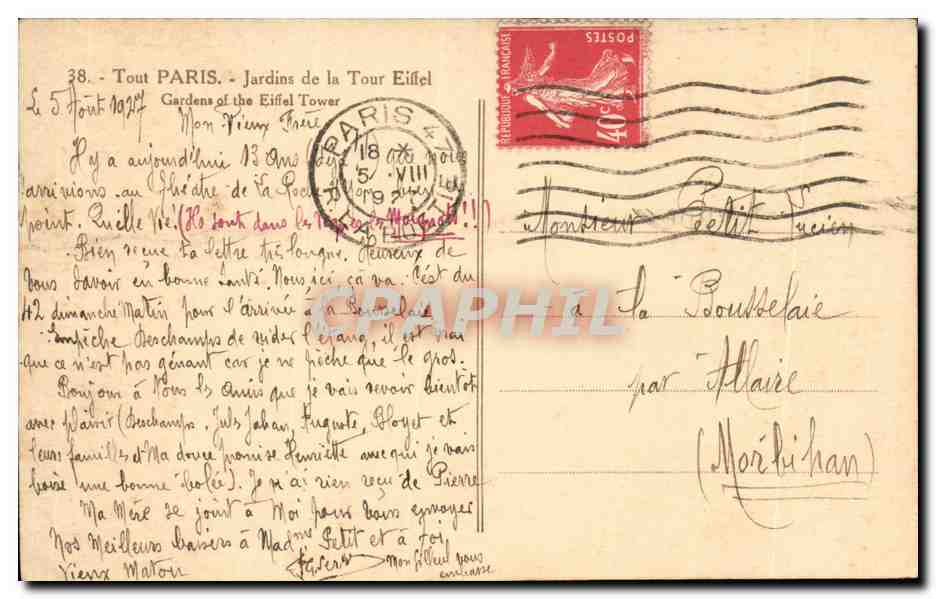 38. - Tout PARIS. - Jardins de la Tour Eiffel
Gardens of the Eiffel Tower
Le 5 Août 1927
Mon Vieux Frère
Il y a aujourd'hui 13 Ans
arrivions au théâtre de La
point. Quelle Vie (
Bien reçue Ta lettre très longue. Heureux de
Vous Savoir en bonne Santé. Nous ici, ça va. C'est du
42 dimanche Matin pour l'arrivée à La Bousselaie
Empêche Deschamps de vider l'étang, il est vrai
que ce n'est pas gênant car je ne pêche que le gros.
Bonjour à Tous les Amis que je vais revoir bientôt
avec plaisir (Deschamps, Jules Jahan, Auguste, Bloyet et
leurs familles et Ma douce promise Henriette avec qui je vais
boire une bonne bolée). Je n'ai rien reçu de Pierre
Ma Mère se joint à Moi pour Vous envoyer
Nos Meilleurs baisers à Madme Petit et à Toi
Vieux Matou
Mon filleul vous
embrasse
PARIS 47
18
5 VIII
192
RÉPUBLIQUE FRANÇAISE
POSTES
40c
Monsieur Petit Lucien
à La Bousselaie
par Allaire
(Morbihan)
CPAPHIL